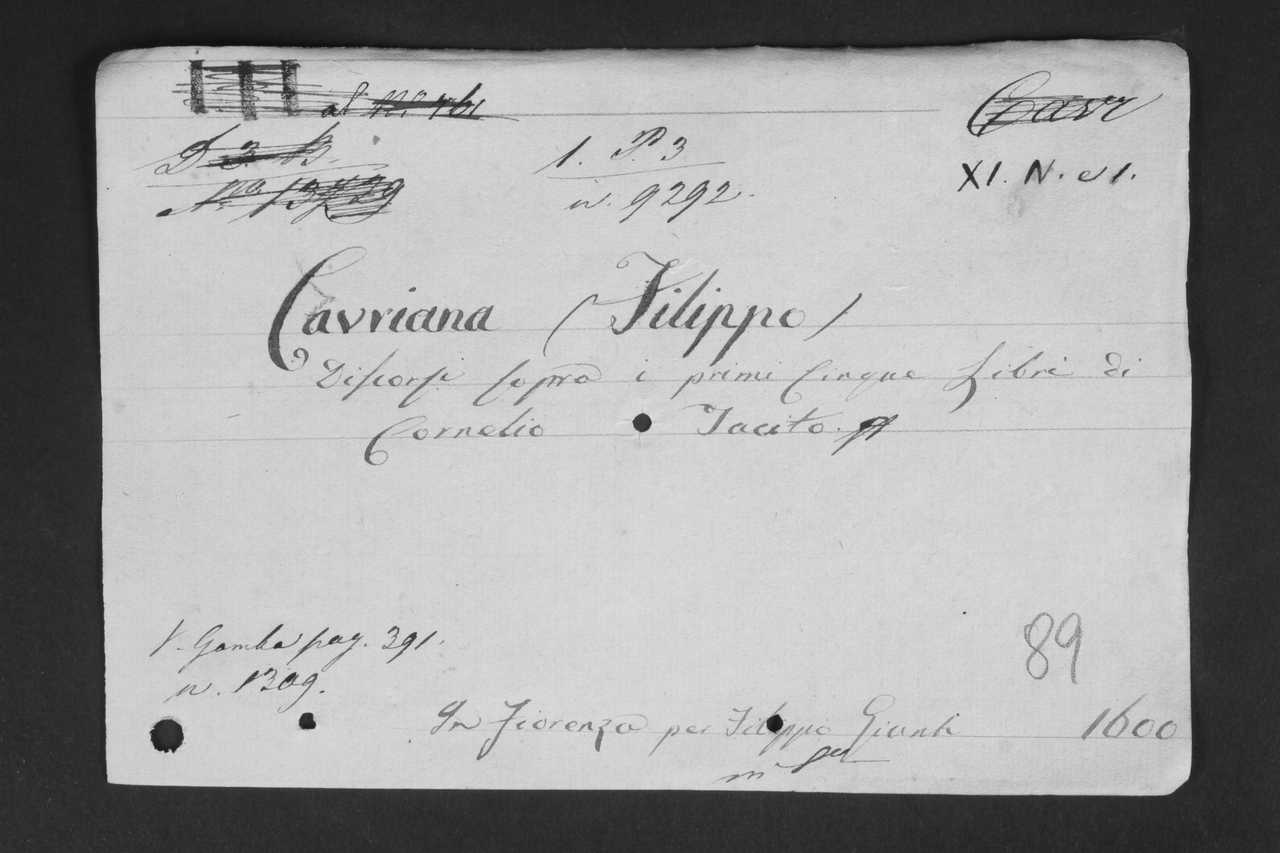 D 3 B.
N.º 13729
1. P. 3
n. 9292.
Cavr
XI. N. 21.
Cavriana (Filippo)
Discorsi sopra i primi Cinque Libri di
Cornelio Tacito.
V. Gamba pag. 391.
n. 1309.
89
In Fiorenza per Filippo Giunti 1600